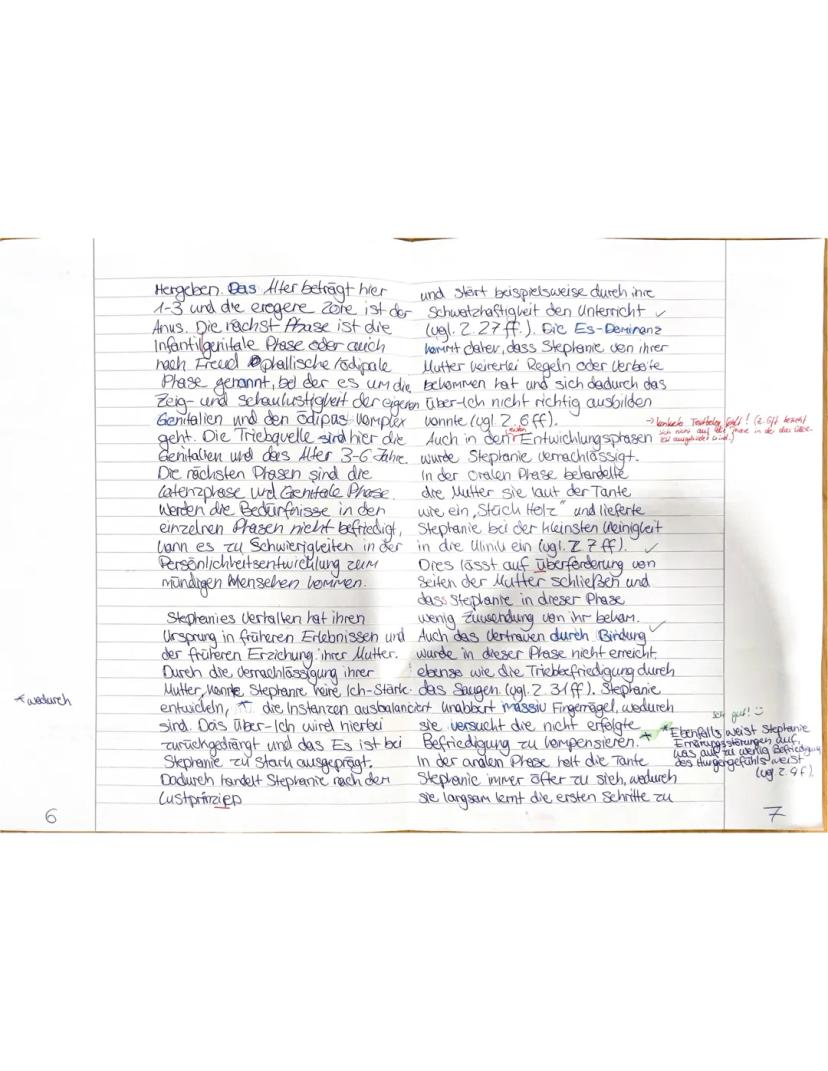 Hergeben. Das Alter beträgt hier
1-3 und die erogene Zone ist der
Anus. Die nächst Phase ist die
Infantilgenitale Phase oder auch
nach Freud phallische/ödipale
Phase genannt, bei der es um die
Zeig- und Schaulustigkeit der eigenen
Genitalien und den Ödipus-Komplex
geht. Die Triebquelle sind hier die
Genitalien und das Alter 3-6 Jahre.
Die nächsten Phasen sind die
Latenzphase und Genitale Phase.
Werden die Bedürfnisse in den
einzelnen Phasen nicht befriedigt,
kann es zu Schwierigkeiten in der
Persönlichkeitsentwicklung zum
mündigen Menschen kommen.
Stephanies Verhalten hat ihren
Ursprung in früheren Erlebnissen und
der früheren Erziehung ihrer Mutter.
Durch die Vernachlässigung ihrer
Mutter, konnte Stephanie keine Ich-Stärke
* wodurch
entwickeln, * die Instanzen ausbalanciert
sind. Das Über-Ich wird hierbei
zurückgedrängt und das Es ist bei
Stephanie zu stark ausgeprägt.
Dadurch handelt Stephanie nach dem
Lustprinziep
6
und stört beispielsweise durch ihre
Schwatzhaftigkeit den Unterricht ✓
(vgl. Z. 27 ff.). Die Es-Dominanz
kommt daher, dass Stephanie von ihrer
Mutter keinerlei Regeln oder Verbote
bekommen hat und sich dadurch das
Über-Ich nicht richtig ausbilden
konnte (vgl. Z. 6ff).
→ konkrete Textbeleg fehlt! (Z. 6ff bezieht
sich nicht auf die Phase in der das Über-
Ich ausgebildet wird.)
Auch in den Entwicklungsphasen
wurde Stephanie vernachlässigt.
In der oralen Phase behandelte
die Mutter sie laut der Tante
wie ein „Stück Holz" und lieferte
Stephanie bei der kleinsten Kleinigkeit
in die Klinik ein (vgl. Z. 7 ff). ✓
Dies lässt auf Überforderung von
Seiten der Mutter schließen und
dass Stephanie in dieser Phase
wenig Zuwendung von ihr bekam.
Auch das Vertrauen durch Bindung ✓
wurde in dieser Phase nicht erreicht
ebenso wie die Triebbefriedigung durch
das Saugen. (vgl. Z. 31 ff). Stephanie
knabbert massiv Fingernägel, wodurch
sie versucht die nicht erfolgte
Befriedigung zu kompensieren. *
sehr gut! :)
* Ebenfalls weist Stephanie
Ernährungsstörungen auf,
was auf zu wenig Befriedigung
des Hungergefühls weist
(vgl Z. 9 f).
In der analen Phase holt die Tante
Stephanie immer öfter zu sich, wodurch
sie langsam lernt die ersten Schritte zu
7